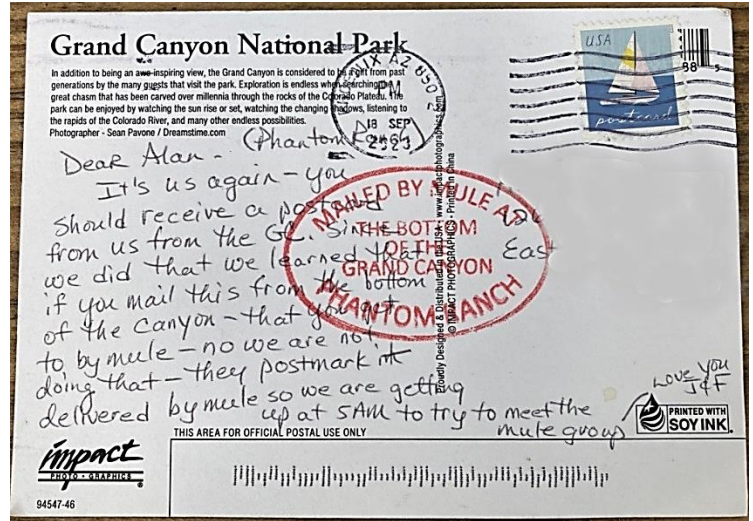 Grand Canyon National Park
In addition to being an awe-inspiring view, the Grand Canyon is considered to be a gift from past
generations by the many guests that visit the park. Exploration is endless when searching the
great chasm that has been carved over millennia through the rocks of the Colorado Plateau. The
park can be enjoyed by watching the sun rise or set, watching the changing shadows, listening to
the rapids of the Colorado River, and many other endless possibilities.
Photographer - Sean Pavone / Dreamstime.com
PHOENIX AZ 850
PM
18 SEP
2023
USA
postcard
88 5
(Phantom Ranch)
Dear Alan -
It's us again - you
should receive a postcard
from us from the GC. Since
we did that we learned that
if you mail this from the bottom
of the Canyon - that you get
to by mule - no we are not
doing that - they postmark it
delivered by mule so we are getting
up at 5AM to try to meet the
mule group
Love you
J&F
MAILED BY MULE AT
THE BOTTOM
OF THE
GRAND CANYON
PHANTOM RANCH
East
Proudly Designed & Distributed in the USA - www.impactphotographics.com
© IMPACT PHOTOGRAPHICS - Printed in China
THIS AREA FOR OFFICIAL POSTAL USE ONLY
PRINTED WITH
SOY INK
impact
PHOTO • GRAPHICS
94547-46